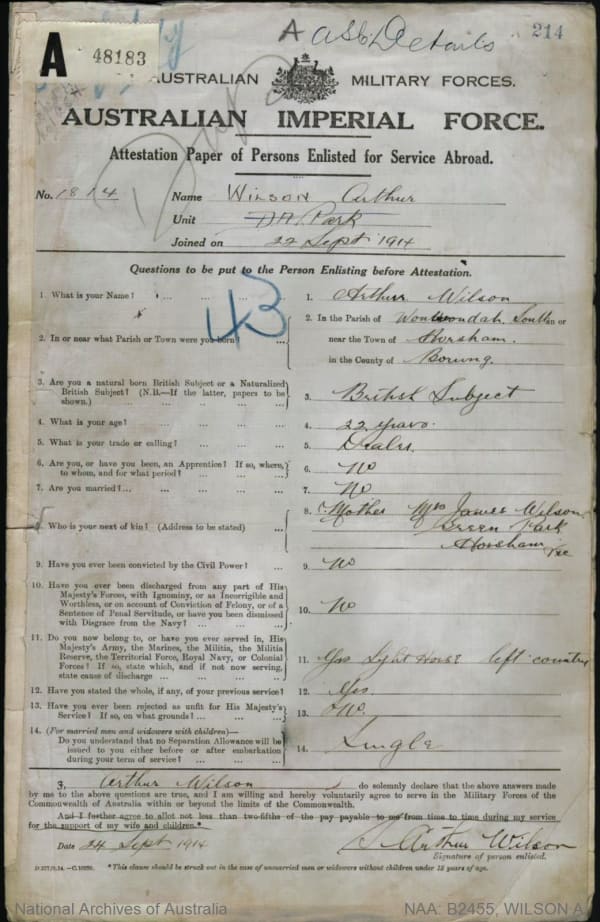 A 48183
A
214
AUSTRALIAN MILITARY FORCES.
AUSTRALIAN IMPERIAL FORCE.
Attestation Paper of Persons Enlisted for Service Abroad.
No. 1814 Name WILSON Arthur
Unit Park
Joined on 22 Sept 1914
Questions to be put to the Person Enlisting before Attestation.
43
1. What is your Name? ... ... ... ... 1. Arthur Wilson
2. In or near what Parish or Town were you born ... 2. In the Parish of Wonwondah South in or
near the Town of Horsham.
in the County of Borung.
3. Are you a natural born British Subject or a Naturalized
British Subject? (N.B.—If the latter, papers to be
shown.) ... ... ... ... 3. British Subject
4. What is your age? ... ... ... ... 4. 22 years.
5. What is your trade or calling? ... ... ... 5. Dealer.
6. Are you, or have you been, an Apprentice? If so, where,
to whom, and for what period? ... ... ... 6. No
7. Are you married?... ... ... ... 7. No
8. Who is your next of kin? (Address to be stated) ... 8. Mother Mrs James Wilson
Green Park
Horsham Vic
9. Have you ever been convicted by the Civil Power? ... 9. No
10. Have you ever been discharged from any part of His
Majesty's Forces, with Ignominy, or as Incorrigible and
Worthless, or on account of Conviction of Felony, or of a
Sentence of Penal Servitude, or have you been dismissed
with Disgrace from the Navy? ... ... ... 10. No
11. Do you now belong to, or have you ever served in, His
Majesty's Army, the Marines, the Militia, the Militia
Reserve, the Territorial Force, Royal Navy, or Colonial
Forces? If so, state which, and if not now serving,
state cause of discharge ... ... ... 11. Yes Light Horse left country
12. Have you stated the whole, if any, of your previous service? 12. Yes.
13. Have you ever been rejected as unfit for His Majesty's
Service? If so, on what grounds? ... ... ... 13. No.
14. (For married men and widowers with children)—
Do you understand that no Separation Allowance will be
issued to you either before or after embarkation
during your term of service? ... ... ... 14. Single
I, Arthur Wilson do solemnly declare that the above answers made
by me to the above questions are true, and I am willing and hereby voluntarily agree to serve in the Military Forces of the
Commonwealth of Australia within or beyond the limits of the Commonwealth.
And I further agree to allot not less than two-fifths of the pay payable to me from time to time during my service
for the support of my wife and children.*
Date 24 Sept 1914 Arthur Wilson
Signature of person enlisted.
*This clause should be struck out in the case of unmarried men or widowers without children under 18 years of age.
National Archives of Australia NAA: B2455, WILSON A